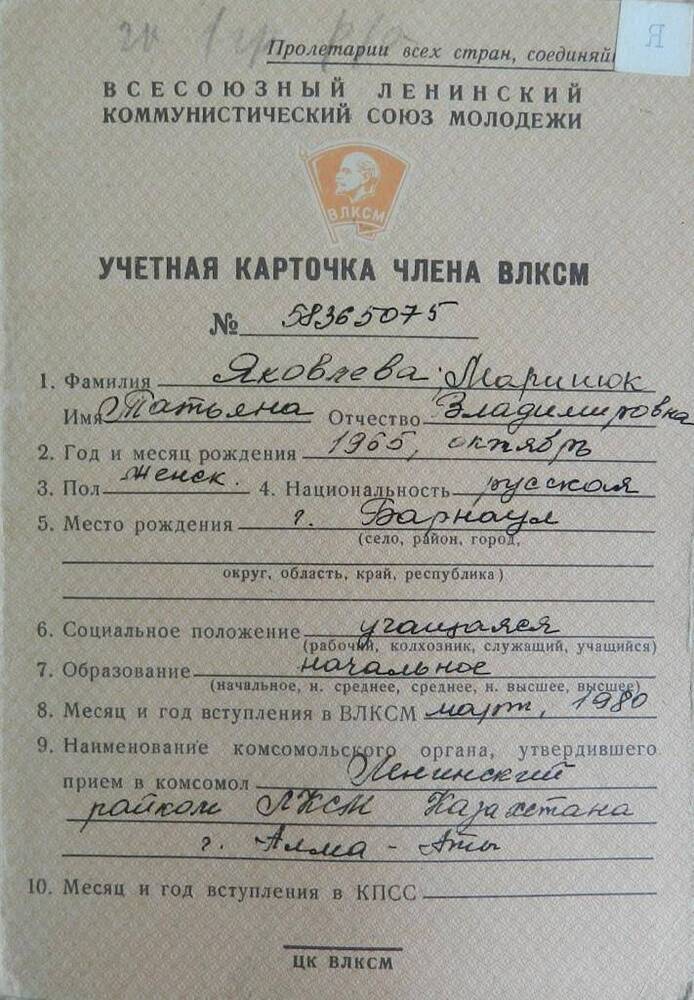 Я
Пролетарии всех стран, соединяй
ВСЕСОЮЗНЫЙ ЛЕНИНСКИЙ
КОММУНИСТИЧЕСКИЙ СОЮЗ МОЛОДЕЖИ
ВЛКСМ
УЧЕТНАЯ КАРТОЧКА ЧЛЕНА ВЛКСМ
№ 58365075
1. Фамилия Яковлева; Маринюк
Имя Татьяна Отчество Владимировна
2. Год и месяц рождения 1965, октябрь
3. Пол женск. 4. Национальность русская
5. Место рождения г. Барнаул
(село, район, город,
округ, область, край, республика)
6. Социальное положение учащаяся
(рабочий, колхозник, служащий, учащийся)
7. Образование начальное
(начальное, н. среднее, среднее, н. высшее, высшее)
8. Месяц и год вступления в ВЛКСМ март, 1980
9. Наименование комсомольского органа, утвердившего
прием в комсомол Ленинский
райком ЛКСМ Казахстана
г. Алма - Аты
10. Месяц и год вступления в КПСС
ЦК ВЛКСМ